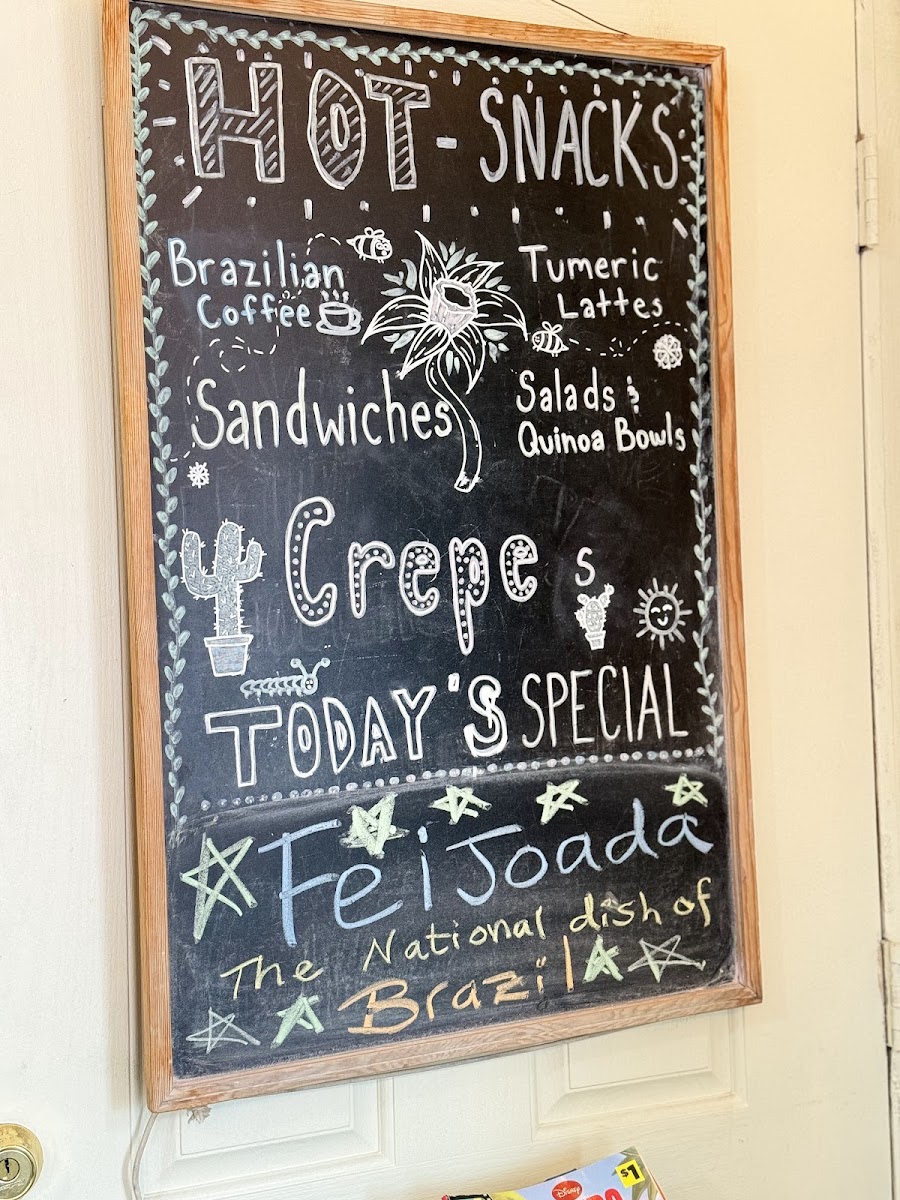 HOT - SNACKS
Brazilian
Coffee
Tumeric
Lattes
Sandwiches
Salads &
Quinoa Bowls
Crepe s
TODAY'S SPECIAL
FeiJoada
The National dish of
Brazil
$1
Disney